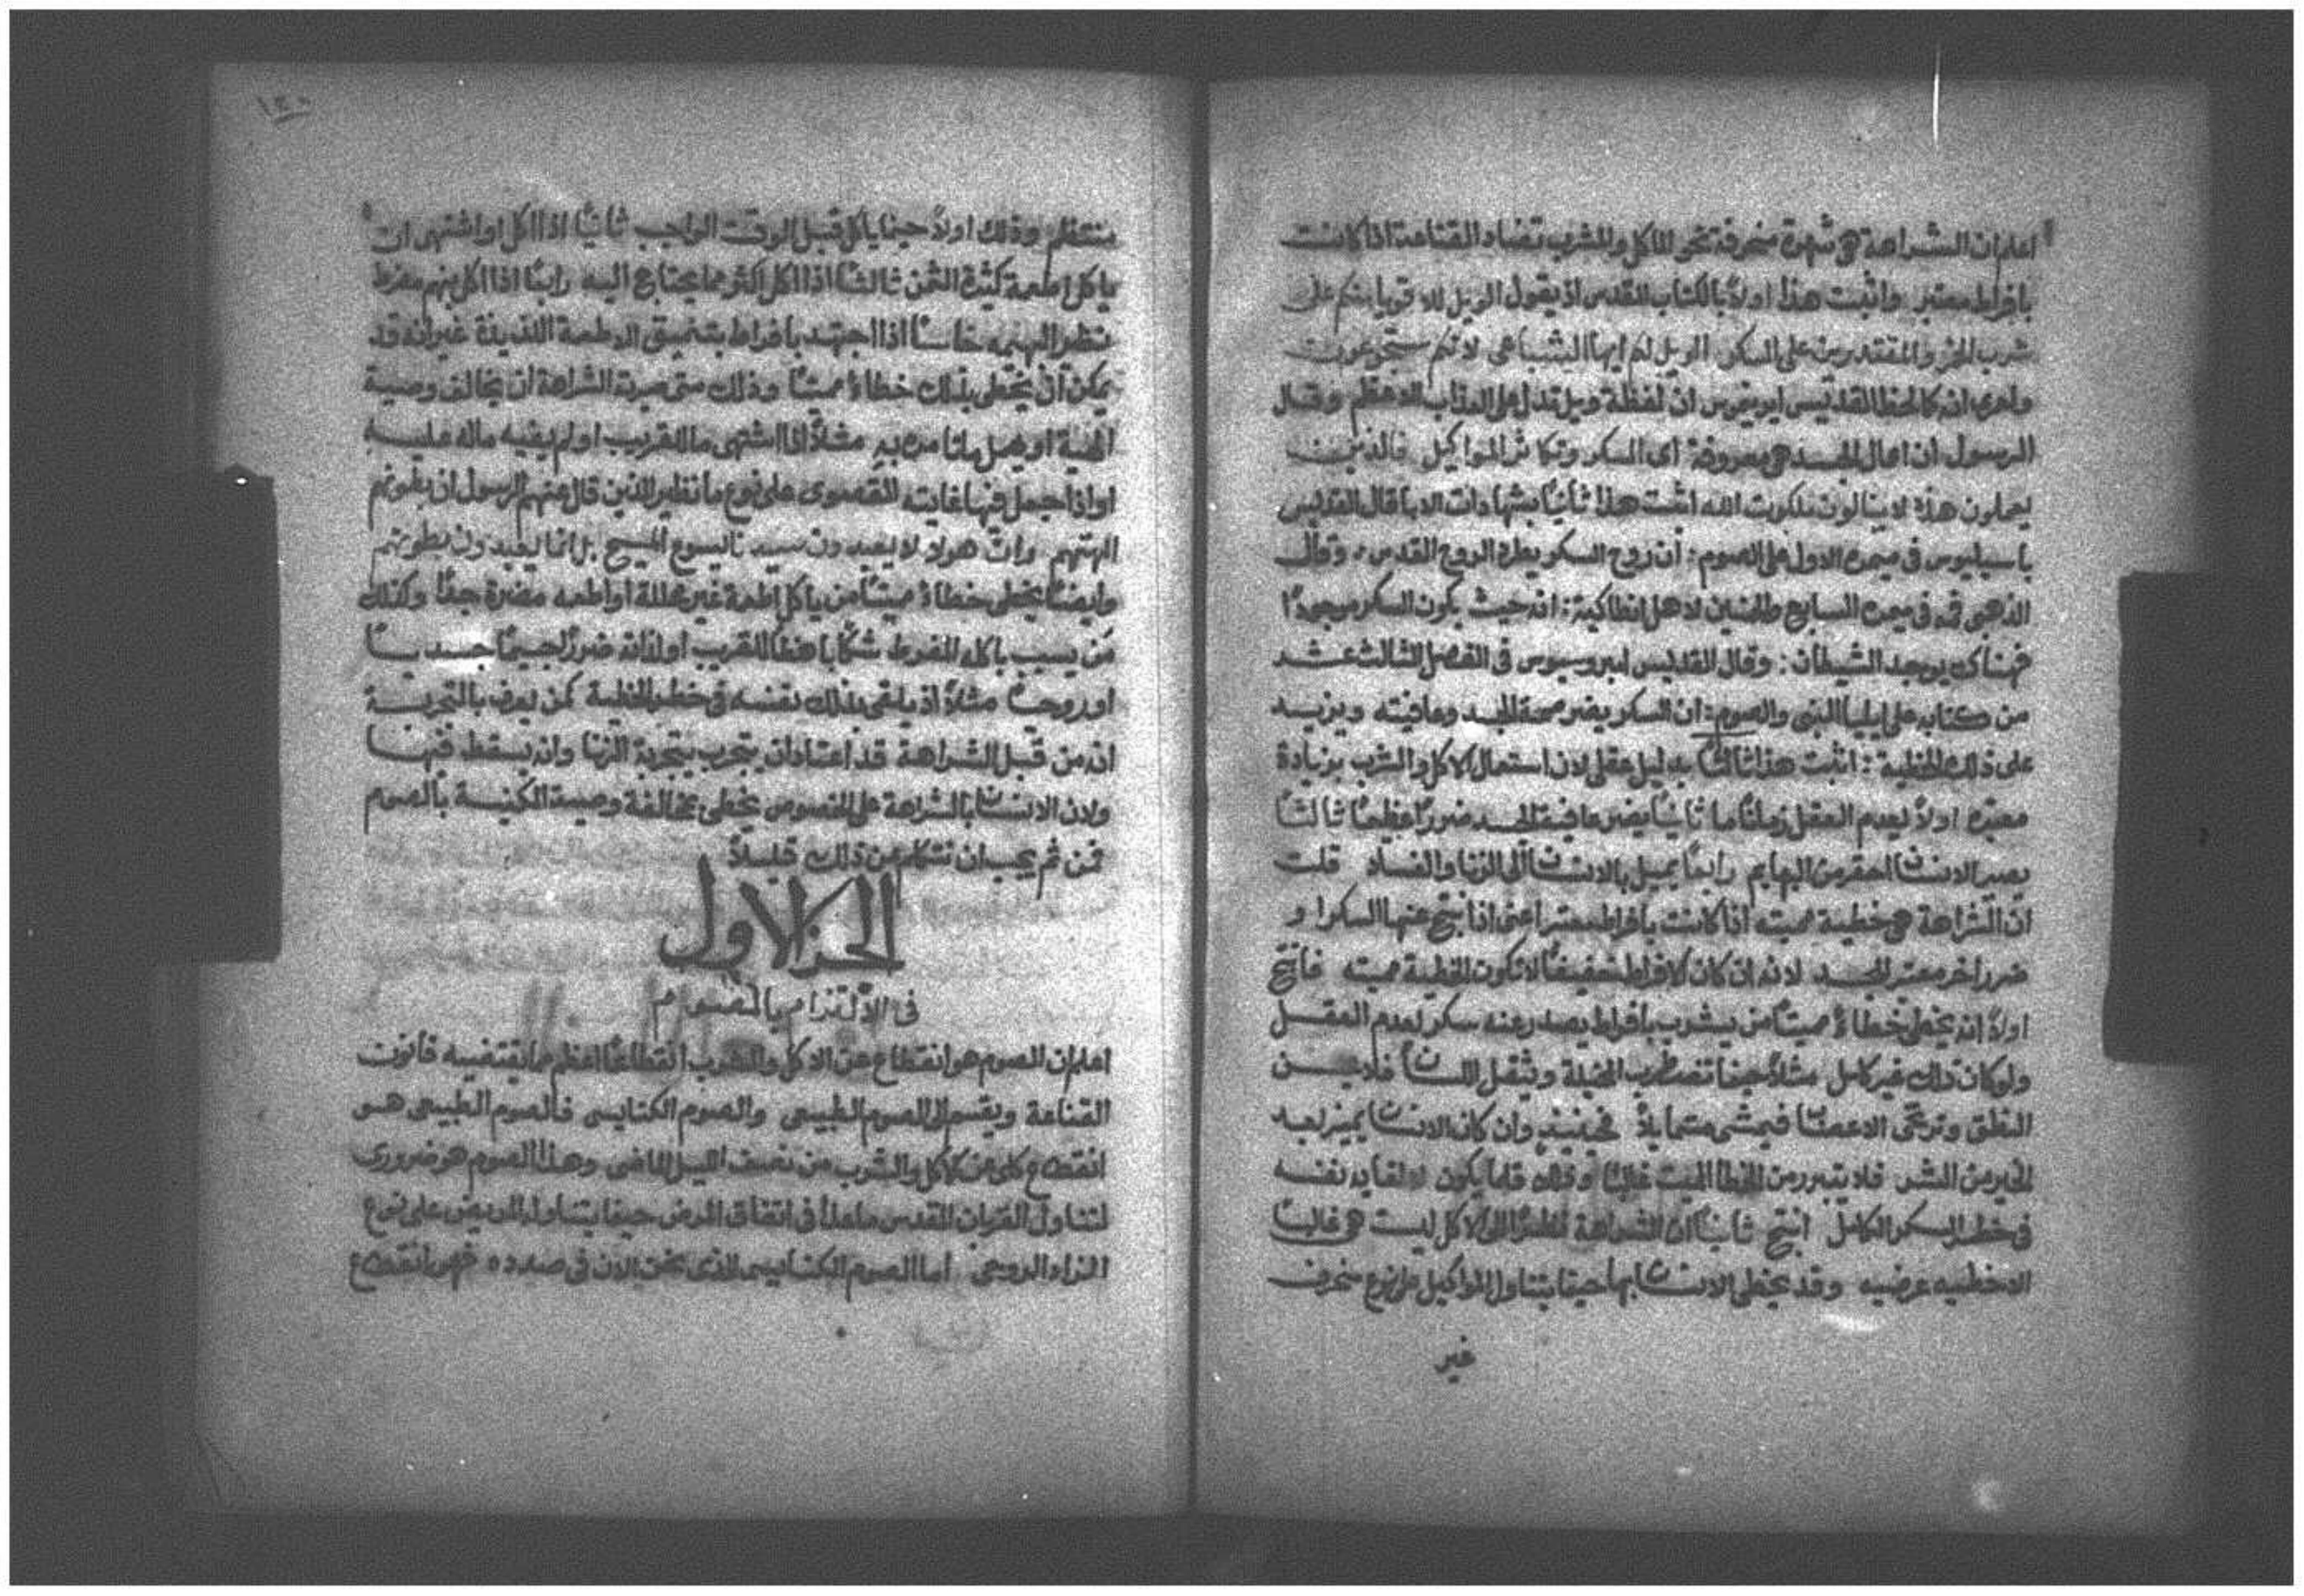 اعلم ان الشراهة هي شهوة منحرفة نحو الماكل والمشرب تضاد القناعة اذا كانت
بافراط معتبر واثبت هذا اولاً بالكتاب المقدس اذ يقول الويل للاقويا منكم على
شرب الخمر والمقتدرين على السكر الويل لكم ايها الشباعى لانكم ستجوعون
ان لفظة ويل تدل على العذاب الاعظم وقال
الرسول ان اعمال الجسد هي معروفة اى السكر وتكاثر المواكيل والذين
يعملون هذا لا ينالون ملكوت الله اثبت هذا ثانياً بشهادات الابا قال القديس
باسيليوس في ميمره الاول على الصوم: ان روح السكر يطرد الروح القدس، وقال
الذهبي فمه في ميمره السابع والخمسين لاهل انطاكية: انه حيث يكون السكر موجوداً
فهناك يوجد الشيطان: وقال القديس امبروسيوس في الفصل الثالث عشر
من كتابه على ايليا النبي والصوم: ان السكر يضر صحة الجسد وعافيته ويزيد
على ذلك الخطية: اثبت هذا ثالثاً بدليل عقلي لان استعمال الاكل والشرب بزيادة
معتبره اولاً يعدم العقل زماناً ما ثانياً يضر عافية الجسد ضرراً عظيماً ثالثاً
يصير الانسان احقر من البهايم رابعاً يميل بالانسان الى الزنا والفساد قلت
ان الشراهة هي خطية مميته اذا كانت بافراط معتبر اعني اذا نتج عنها السكر او
ضرر اخر معتبر للجسد لانه ان كان الافراط خفيفاً لا تكون الخطية مميته فانتج
اولاً انه يخطي خطاءً مميتاً من يشرب بافراط يصدر عنه سكر يعدم العقل
ولو كان ذلك غير كامل مثلاً حينما تضطرب المخيلة ويثقل اللسان
النطق وترتخى الاعضا فيمشي متمايلاً فحينيذٍ وان كان الانسان يميز بعد
الخير من الشر فلا يتبرر من الخطا المميت غالباً وذلك قلما يكون لالقايه نفسه
في خطر السكر الكامل انتج ثانياً ان الشراهة نظراً الى الاكل ليست هي غالباً
الا خطيه عرضيه وقد يخطي الانسان بها حينما يتناول المواكيل على نوع منحرف
غير
١٤٠
منتظم وذلك اولاً حينما ياكل قبل الوقت الواجب ثانياً اذا اكل او اشتهى ان
ياكل اطعمة كثيرة الثمن ثالثاً اذا اكل اكثر مما يحتاج اليه رابعاً اذا اكل بنهم مفرط
نظير البهيمه خامساً اذا اجتهد بافراط بتنميق الاطعمة اللذيذة غير انه قد
يمكن ان يخطي بذلك خطاءً مميتاً وذلك متى صيرته الشراهة ان يخالف وصية
الهية مثلاً اذا اشتهى مال القريب او لم يفيه ماله عليه
او اذا جعل فيها غايته القصوى على نوع ما نظير الذين قال عنهم الرسول ان بطونهم
الهتهم وان هولا لا يعبدون سيدنا يسوع المسيح بل انما يعبدون بطونهم
وايضاً يخطي خطاءً مميتاً من ياكل اطعمة غير محللة او اطعمه مضرة جداً وكذلك
من يسبب باكله المفرط شكاً باهظاً للقريب او لذاته ضرراً جسيماً جسدياً
او روحياً مثلاً اذ يلقي بذلك نفسه في خطر الخطية كمن يعرف بالتجربة
انه من قبل الشراهة قد اعتاد ان يتجرب بتجربة الزنا وان يسقط فيها
ولان الانسان بالشراهة على الخصوص يخطي بمخالفة وصية الكنيسة بالصوم
فمن ثم يجب ان نتكلم عن ذلك قليلاً
الجز الاول
في الالتزام بالصوم
اعلم ان الصوم هو انقطاع عن الاكل والشرب انقطاعاً اعظم مما يقتضيه قانون
القناعة ويقسم الى الصوم الطبيعي والصوم الكنايسي فالصوم الطبيعي هو
انقطاع كلي عن الاكل والشرب من نصف الليل الماضي وهذا الصوم هو ضروري
لتناول القربان المقدس ما عدا في اتفاق المرض حينما يتناوله المريض على نوع
الزاد الروحي اما الصوم الكنايسي الذي نحن الان في صدده فهو انقطاع